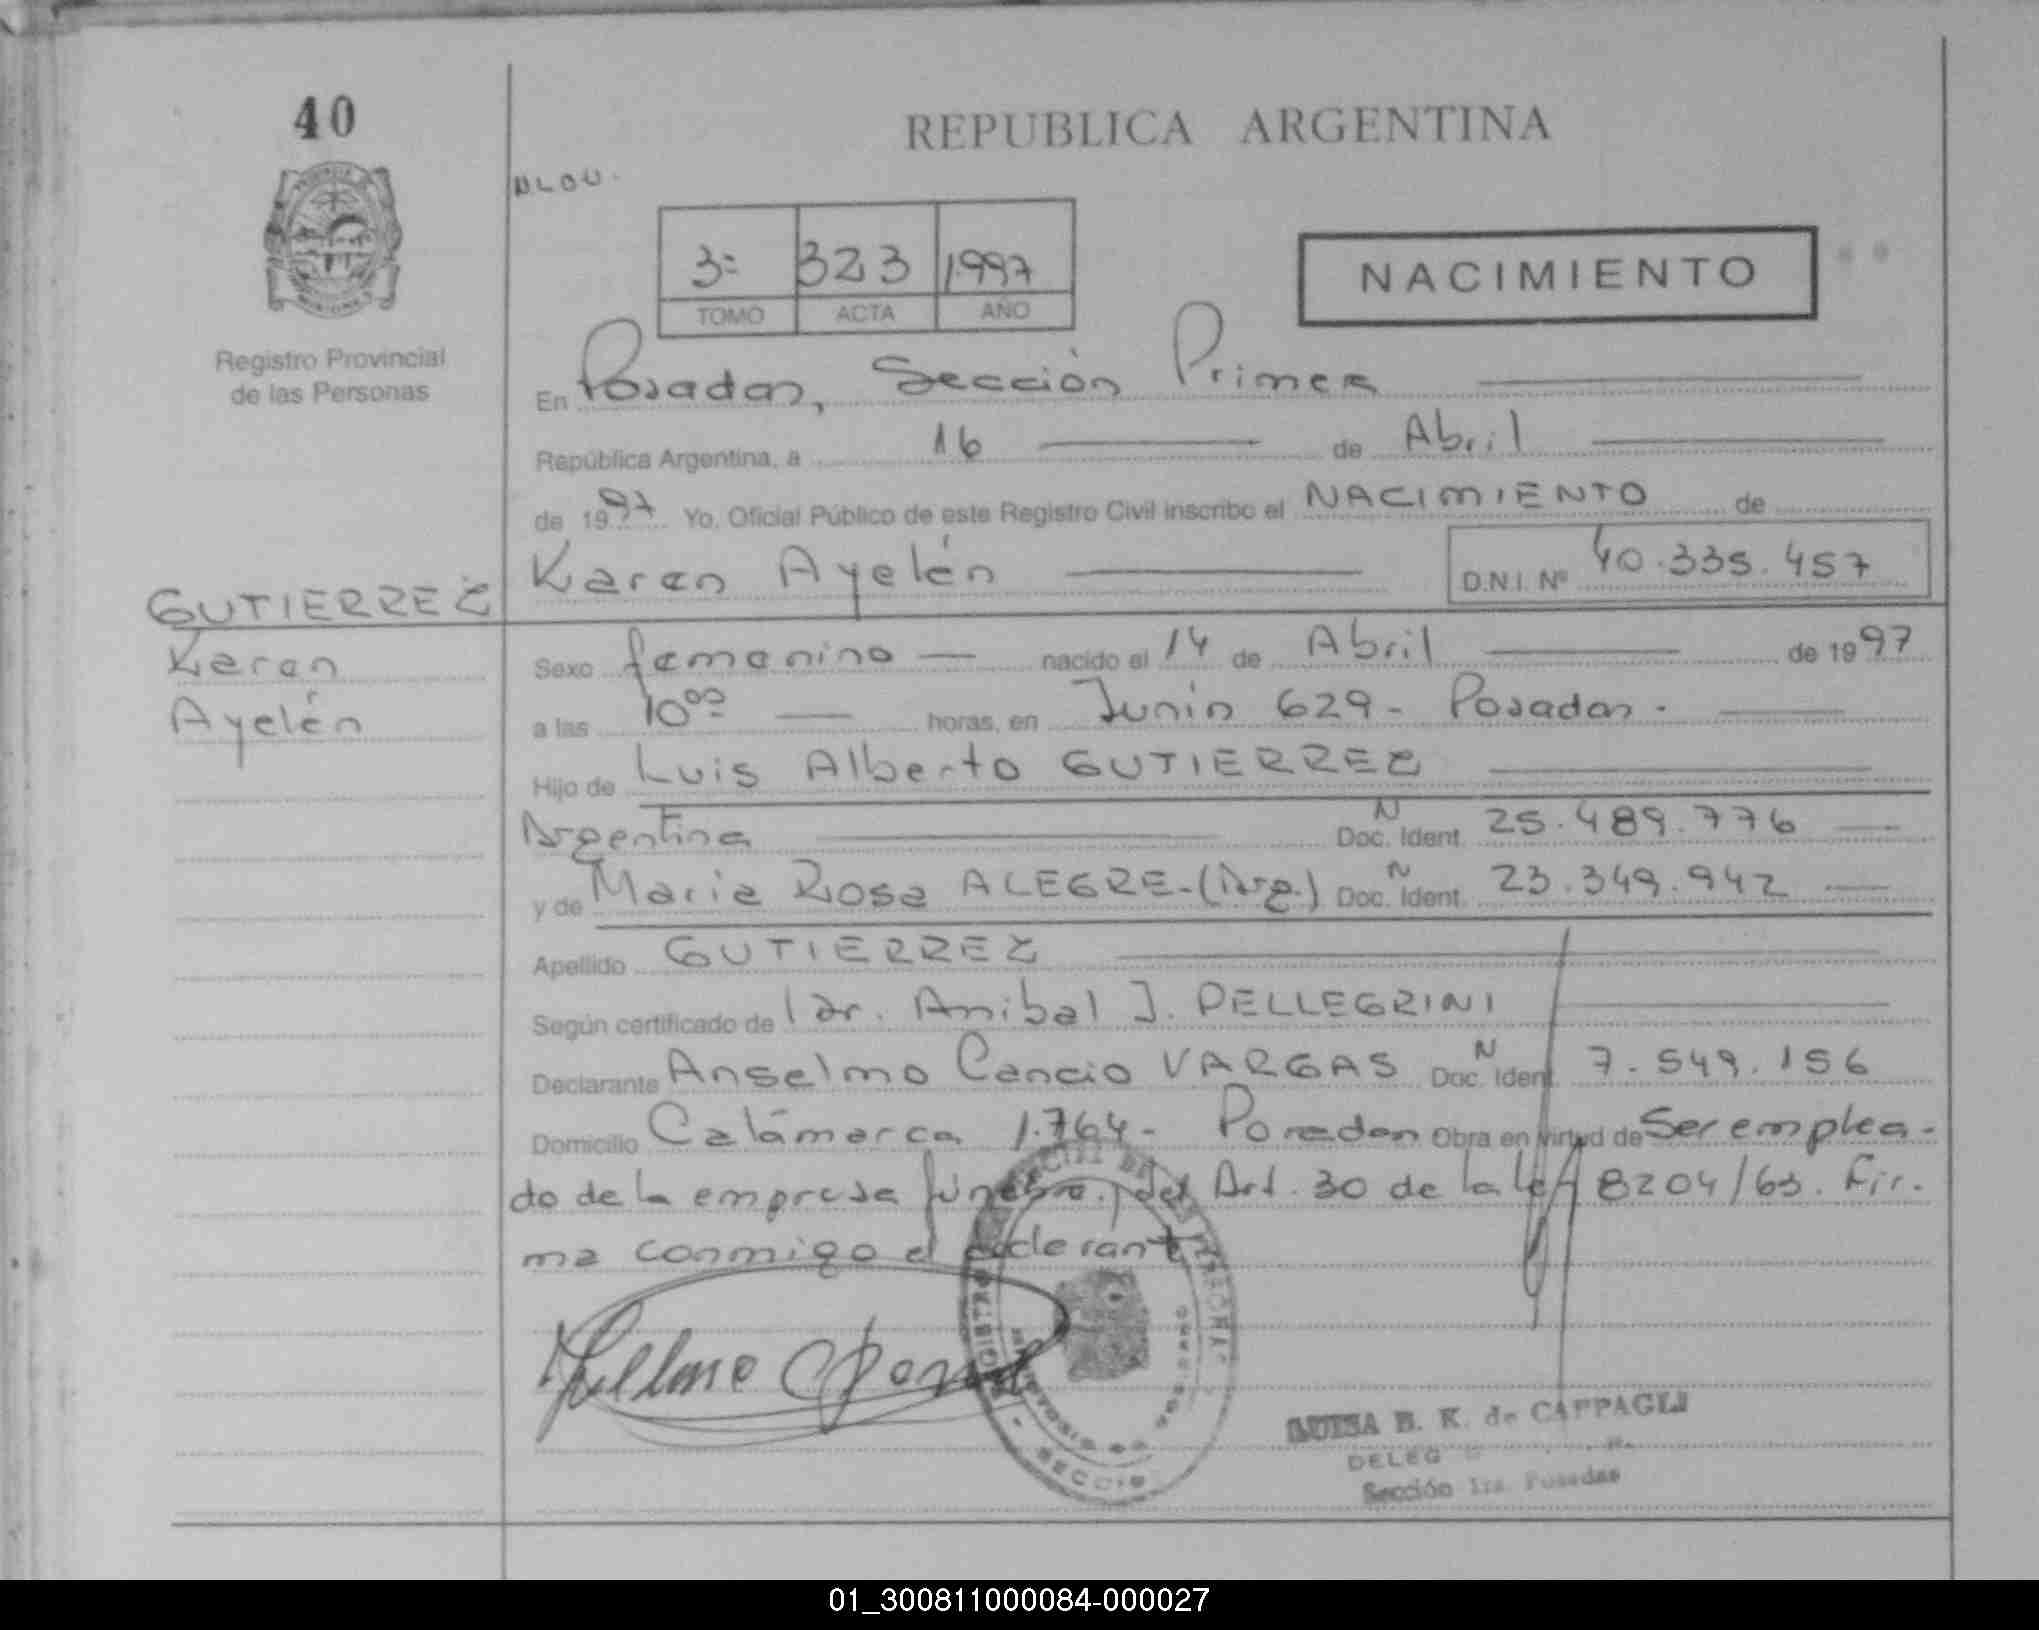 40
REPUBLICA ARGENTINA
NLOU.
3º 323 1997
TOMO ACTA AÑO
NACIMIENTO
Registro Provincial
de las Personas
En Posadas, Sección Primera
República Argentina, a 16 de Abril
de 1997 Yo, Oficial Público de este Registro Civil inscribo el NACIMIENTO de
Karen Ayelén D.N.I. Nº 40.335.457
GUTIERREZ
Karen
Ayelén
Sexo femenino nacido el 14 de Abril de 1997
a las 10⁰⁰ horas, en Junín 629 - Posadas.
Hijo de Luis Alberto GUTIERREZ
Argentina N Doc. Ident. 25.489.776
y de Maria Rosa ALEGRE-(Arg.) N Doc. Ident. 23.349.942
Apellido GUTIERREZ
Según certificado de dr. Anibal J. PELLEGRINI
Declarante Anselmo Cancio VARGAS N Doc. Ident. 7.549.156
Domicilio Catámarca 1.764- Posadas Obra en virtud de Ser emplea-
do de la empresa fúnebre. del Art. 30 de la ley 8204/63. Fir.
ma conmigo el declarante
LUISA B. K. de CAPPAGLI
DELEG
Sección 1ra. Posadas
01_300811000084-000027